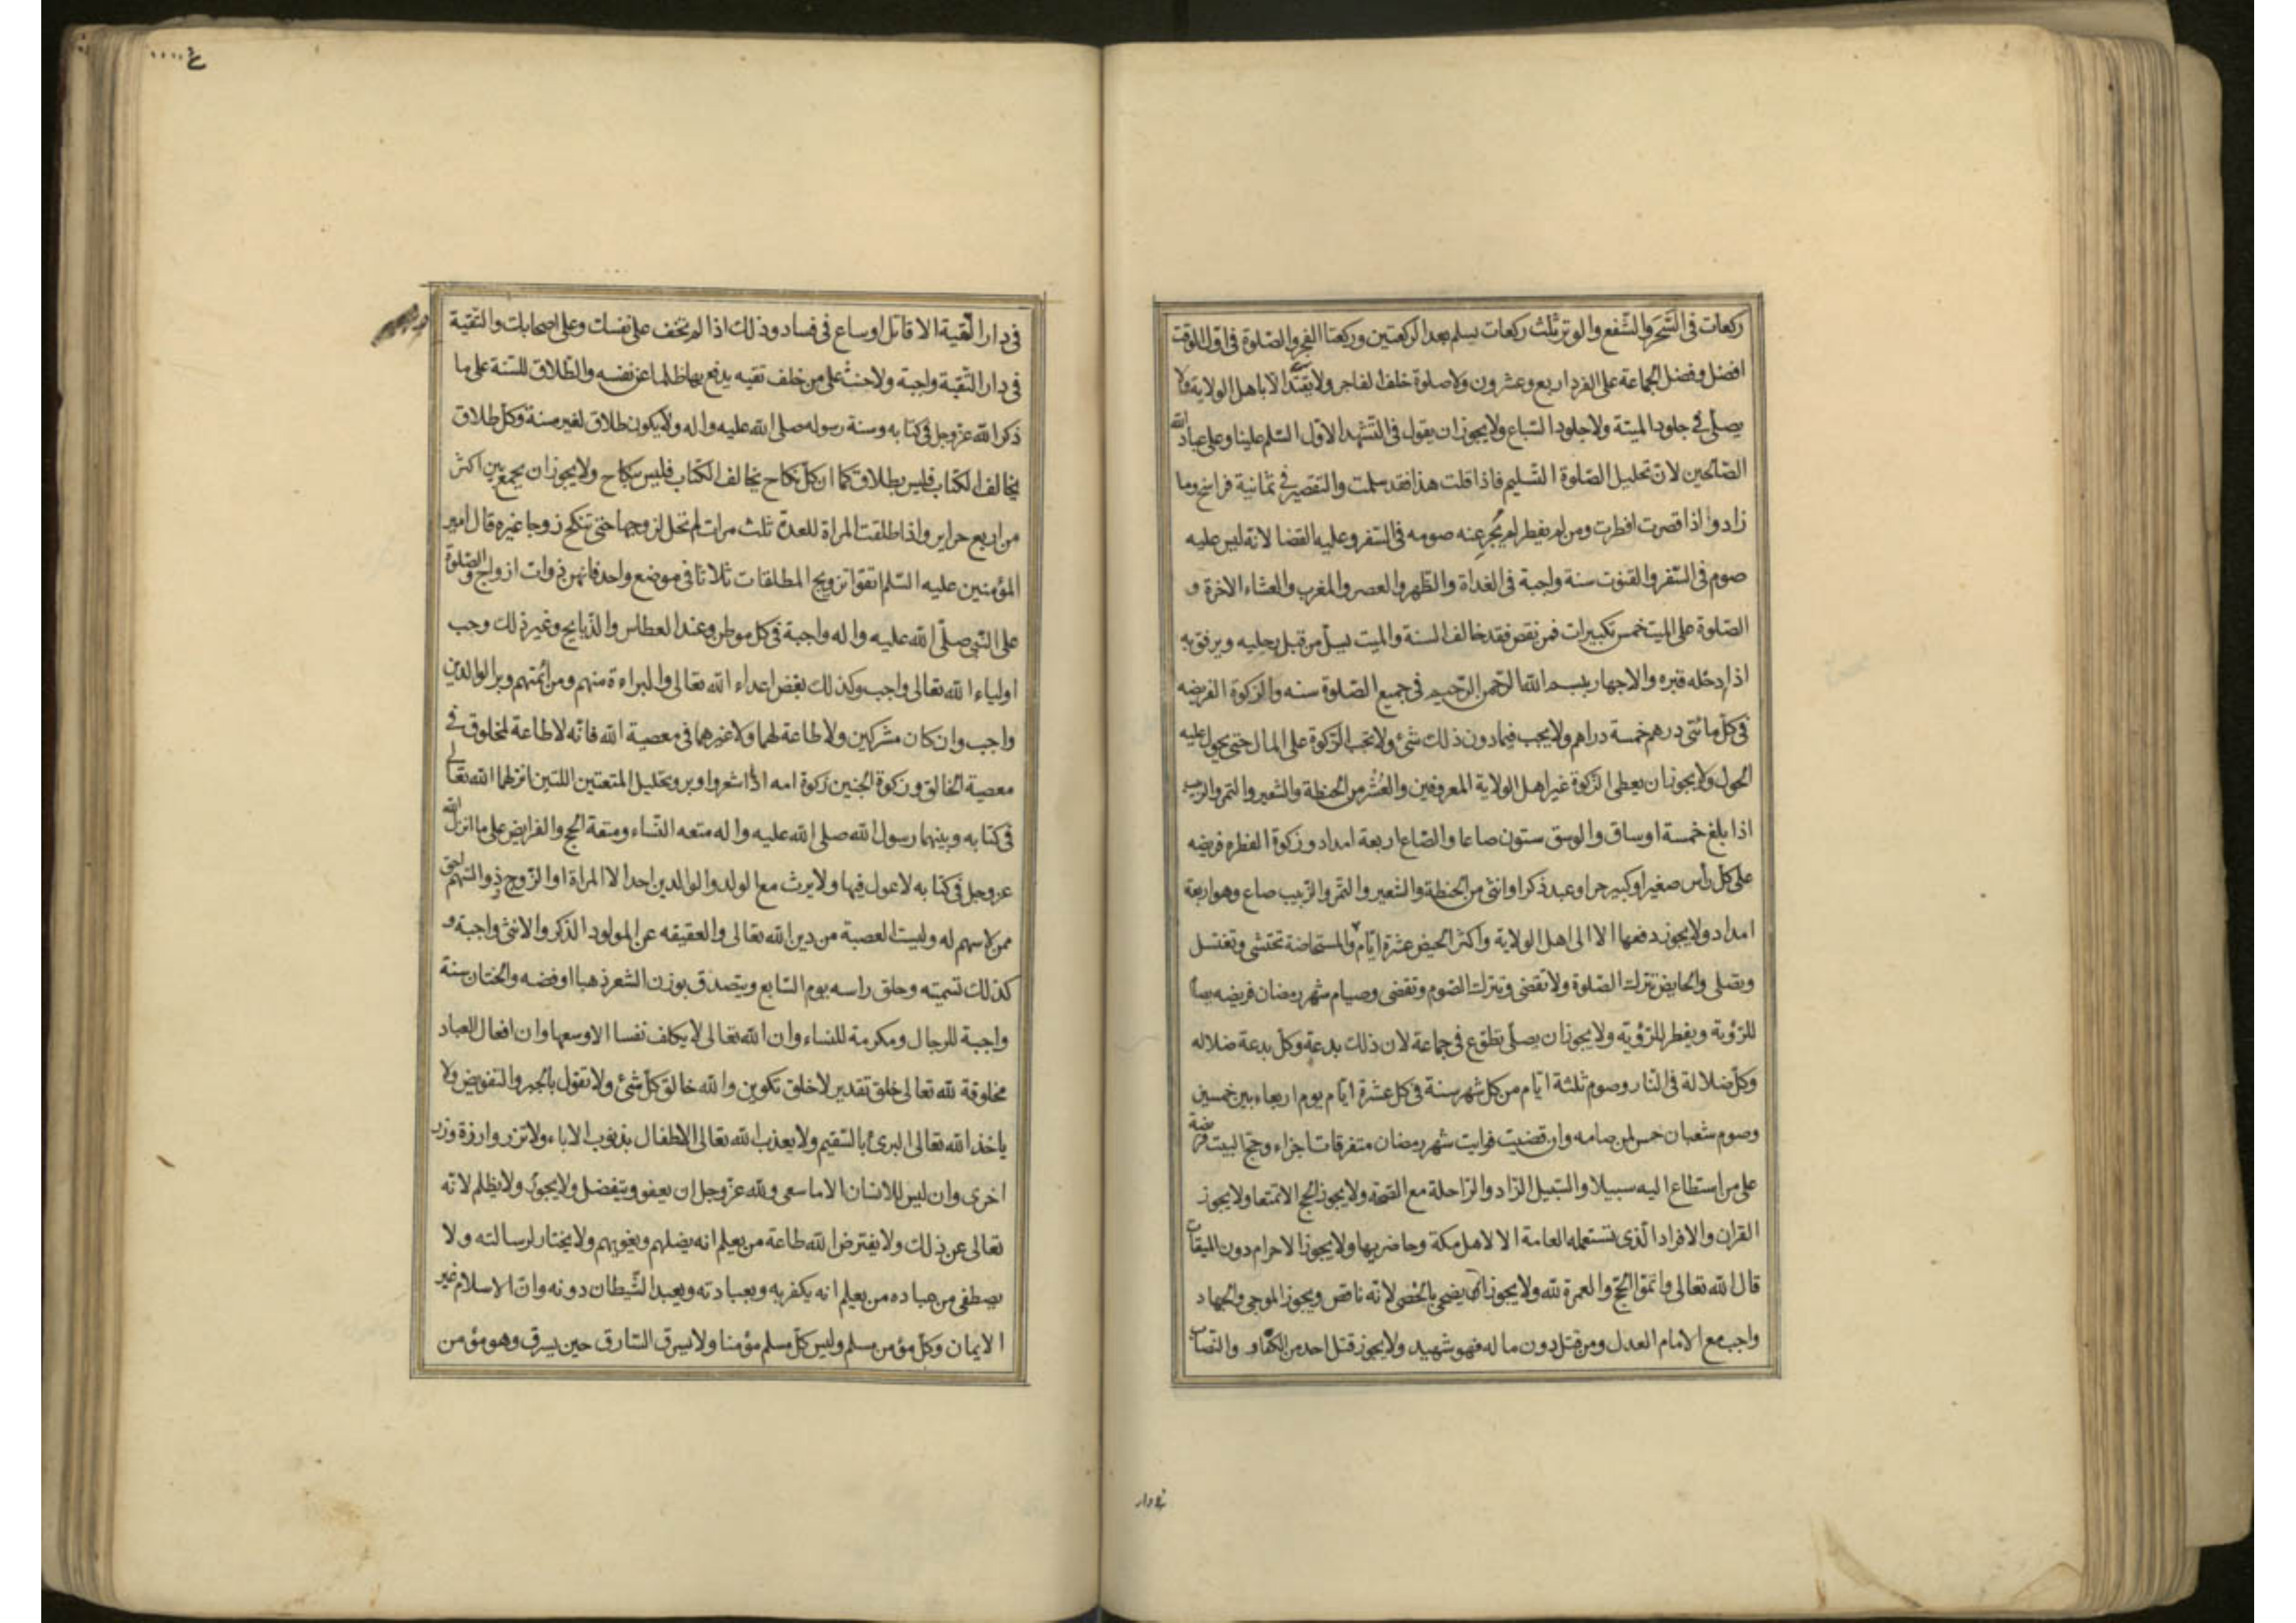 ركعات فى السَّحَر والشفع والوتر ثلث ركعات يسلم بعد الركعتين وركعتا الفجر والصّلوة فى اول الوقت
افضل وفضل الجماعة على الفرد اربع وعشرون ولا صلوة خلف الفاجر ولا يقتدا الا باهل الولاية ولا
يصلّى فى جلود الميتة ولا جلود السّباع ولا يجوز ان يقول فى التشهد الاول السّلم علينا وعلى عباد الله
الصّالحين لان تحليل الصّلوة التّسليم فاذا قلت هذا فقد سلمت والتقصير فى ثمانية فراسخ وما
زاد واذا قصرت افطرت ومن لم يفطر لم يُجز عنه صومه فى السّفر وعليه القضا لانه ليس عليه
صوم فى السّفر والقنوت سنة واجبة فى الغداة والظّهر والعصر والمغرب والعشاء الاخرة و
الصّلوة على الميت خمس تكبيرات فمن نقص فقد خالف السنة والميت يسلّ من قبل رجليه ويرفق به
اذا دخله قبره والاجهار ببسم الله الرّحمن الرّحيم فى جميع الصّلوة سنه والزكوة الفريضه
فى كلّ مائتى درهم خمسة دراهم ولا يجب فيما دون ذلك شئ ولا تجب الزّكوة على المال حتى يحول عليه
الحول ولا يجوز ان يعطى الزّكوة غير اهل الولاية المعروفين والعُشْر من الحنطة والشعير والتمر والزبيب
اذا بلغ خمسة اوساق والوسق ستون صاعا والصّاع اربعة امداد وزكوة الفطره فريضه
على كلّ رأس صغير او كبير حر او عبد ذكر او انثى من الحنطة والشعير والتمر والزبيب صاع وهو اربعة
امداد ولا يجوز دفعها الا الى اهل الولاية واكثر الحيض عشرة ايّام والمستحاضة تحتشى وتغتسل
وتصلى والحايض تترك الصّلوة ولا تقضى وتترك الصّوم وتقضى وصيام شهر رمضان فريضه يصام
للرّؤية ويفطر للرّؤية ولا يجوز ان يصلّى تطوّع فى جماعة لان ذلك بدعة وكلّ بدعة ضلاله
وكلّ ضلالة فى النّار وصوم ثلثة ايّام من كل شهر سنة فى كل عشرة ايّام يوم اربعاء بين خمسين
وصوم شعبان حسن لمن صامه وان قضيت فوايت شهر رمضان متفرقات اجزاء وحجّ البيت فريضة
على من استطاع اليه سبيلا والسّبيل الزّاد والرّاحلة مع الصّحّة ولا يجوز الحج الا تمتعا ولا يجوز
القران والافراد الّذى تستعمله العامة الا لاهل مكة وحاضريها ولا يجوز الاحرام دون الميقات
قال الله تعالى واتمّوا الحجّ والعمرة لله ولا يجوز ان يضحى بالخصى لانّه ناقص ويجوز الموجى والجهاد
واجب مع الامام العدل ومن قتل دون ماله فهو شهيد ولا يجوز قتل احد من الكفّار والنصّاب
فى دار
فى دار التّقية الا قاتل او ساع فى فساد وذلك اذا لم تخف على نفسك وعلى اصحابك والتقية
فى دار التّقية واجبة ولا حنث على من حلف تقيه يدفع بها ظلما عن نفسه والطّلاق للسّنة على ما
ذكر الله عزّ وجل فى كتابه وسنة رسوله صلى الله عليه واله ولا يكون طلاق لغير سنة وكلّ طلاق
يخالف الكتاب فليس بطلاق كما ان كلّ نكاح يخالف الكتاب فليس بنكاح ولا يجوز ان يجمع بين اكثر
من اربع حراير واذا طلقت المراة للعدة ثلث مرات لم تحل لزوجها حتى تنكح زوجا غيره قال امير
المؤمنين عليه السّلم اتقوا تزويج المطلقات ثلاثا فى موضع واحد فانهن ذوات ازواج والصّلوة
على النبى صلّى الله عليه واله واجبة فى كل موطن وعند العطاس والذّبايح وغير ذلك وحب
اولياء الله تعالى واجب وكذلك بغض اعداء الله تعالى والبراءة منهم ومن ائمتهم وبر الوالدين
واجب وان كان مشركين ولا طاعة لهما ولا غيرهما فى معصية الله فانّه لا طاعة لمخلوق فى
معصية الخالق وزكوة الجنين زكوة امه اذا اشعر واوبر وتحليل المتعتين اللتين انزلهما الله تعالى
فى كتابه وبينهما رسول الله صلى الله عليه واله متعه النّساء ومتعة الحج والفرايض على ما انزل الله
عز وجل فى كتابه لا عول فيها ولا يرث مع الولد والوالدين احد الا المراة او الزّوج وذو السّهم احق
ممن لا سهم له وليست العصبة من دين الله تعالى والعقيقه عن المولود الذّكر والانثى واجبة و
كذلك تسميته وحلق راسه يوم السّابع ويتصدق بوزن الشعر ذهبا او فضه والختان سنة
واجبة للرجال ومكرمة للنساء وان الله تعالى لا يكلف نفسا الا وسعها وان افعال العباد
مخلوقة لله تعالى خلق تقدير لا خلق تكوين والله خالق كلّ شئ ولا تقول بالجبر والتفويض ولا
ياخذ الله تعالى البرئ بالسّقيم ولا يعذب الله تعالى الاطفال بذنوب الاباء ولا تزر وازرة وزر
اخرى وان ليس للانسان الا ما سعى ولله عزّ وجل ان يعفو ويتفضل ولا يجور ولا يظلم لانّه
تعالى عن ذلك ولا يفترض الله طاعة من يعلم انه يضلهم ويغويهم ولا يختار لرسالته ولا
يصطفى من عباده من يعلم انه يكفر به وبعبادته ويعبد الشّيطان دونه وانّ الاسلام غير
الايمان وكلّ مؤمن مسلم وليس كلّ مسلم مؤمنا ولا يسرق السّارق حين يسرق وهو مؤمن